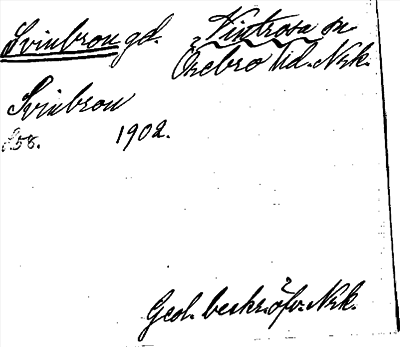 Svinbron gd. Vintrosa sn
Örebro hd. Nrk.
Svinbron
858. 1902.
Geol. beskr. öfv. Nrk.